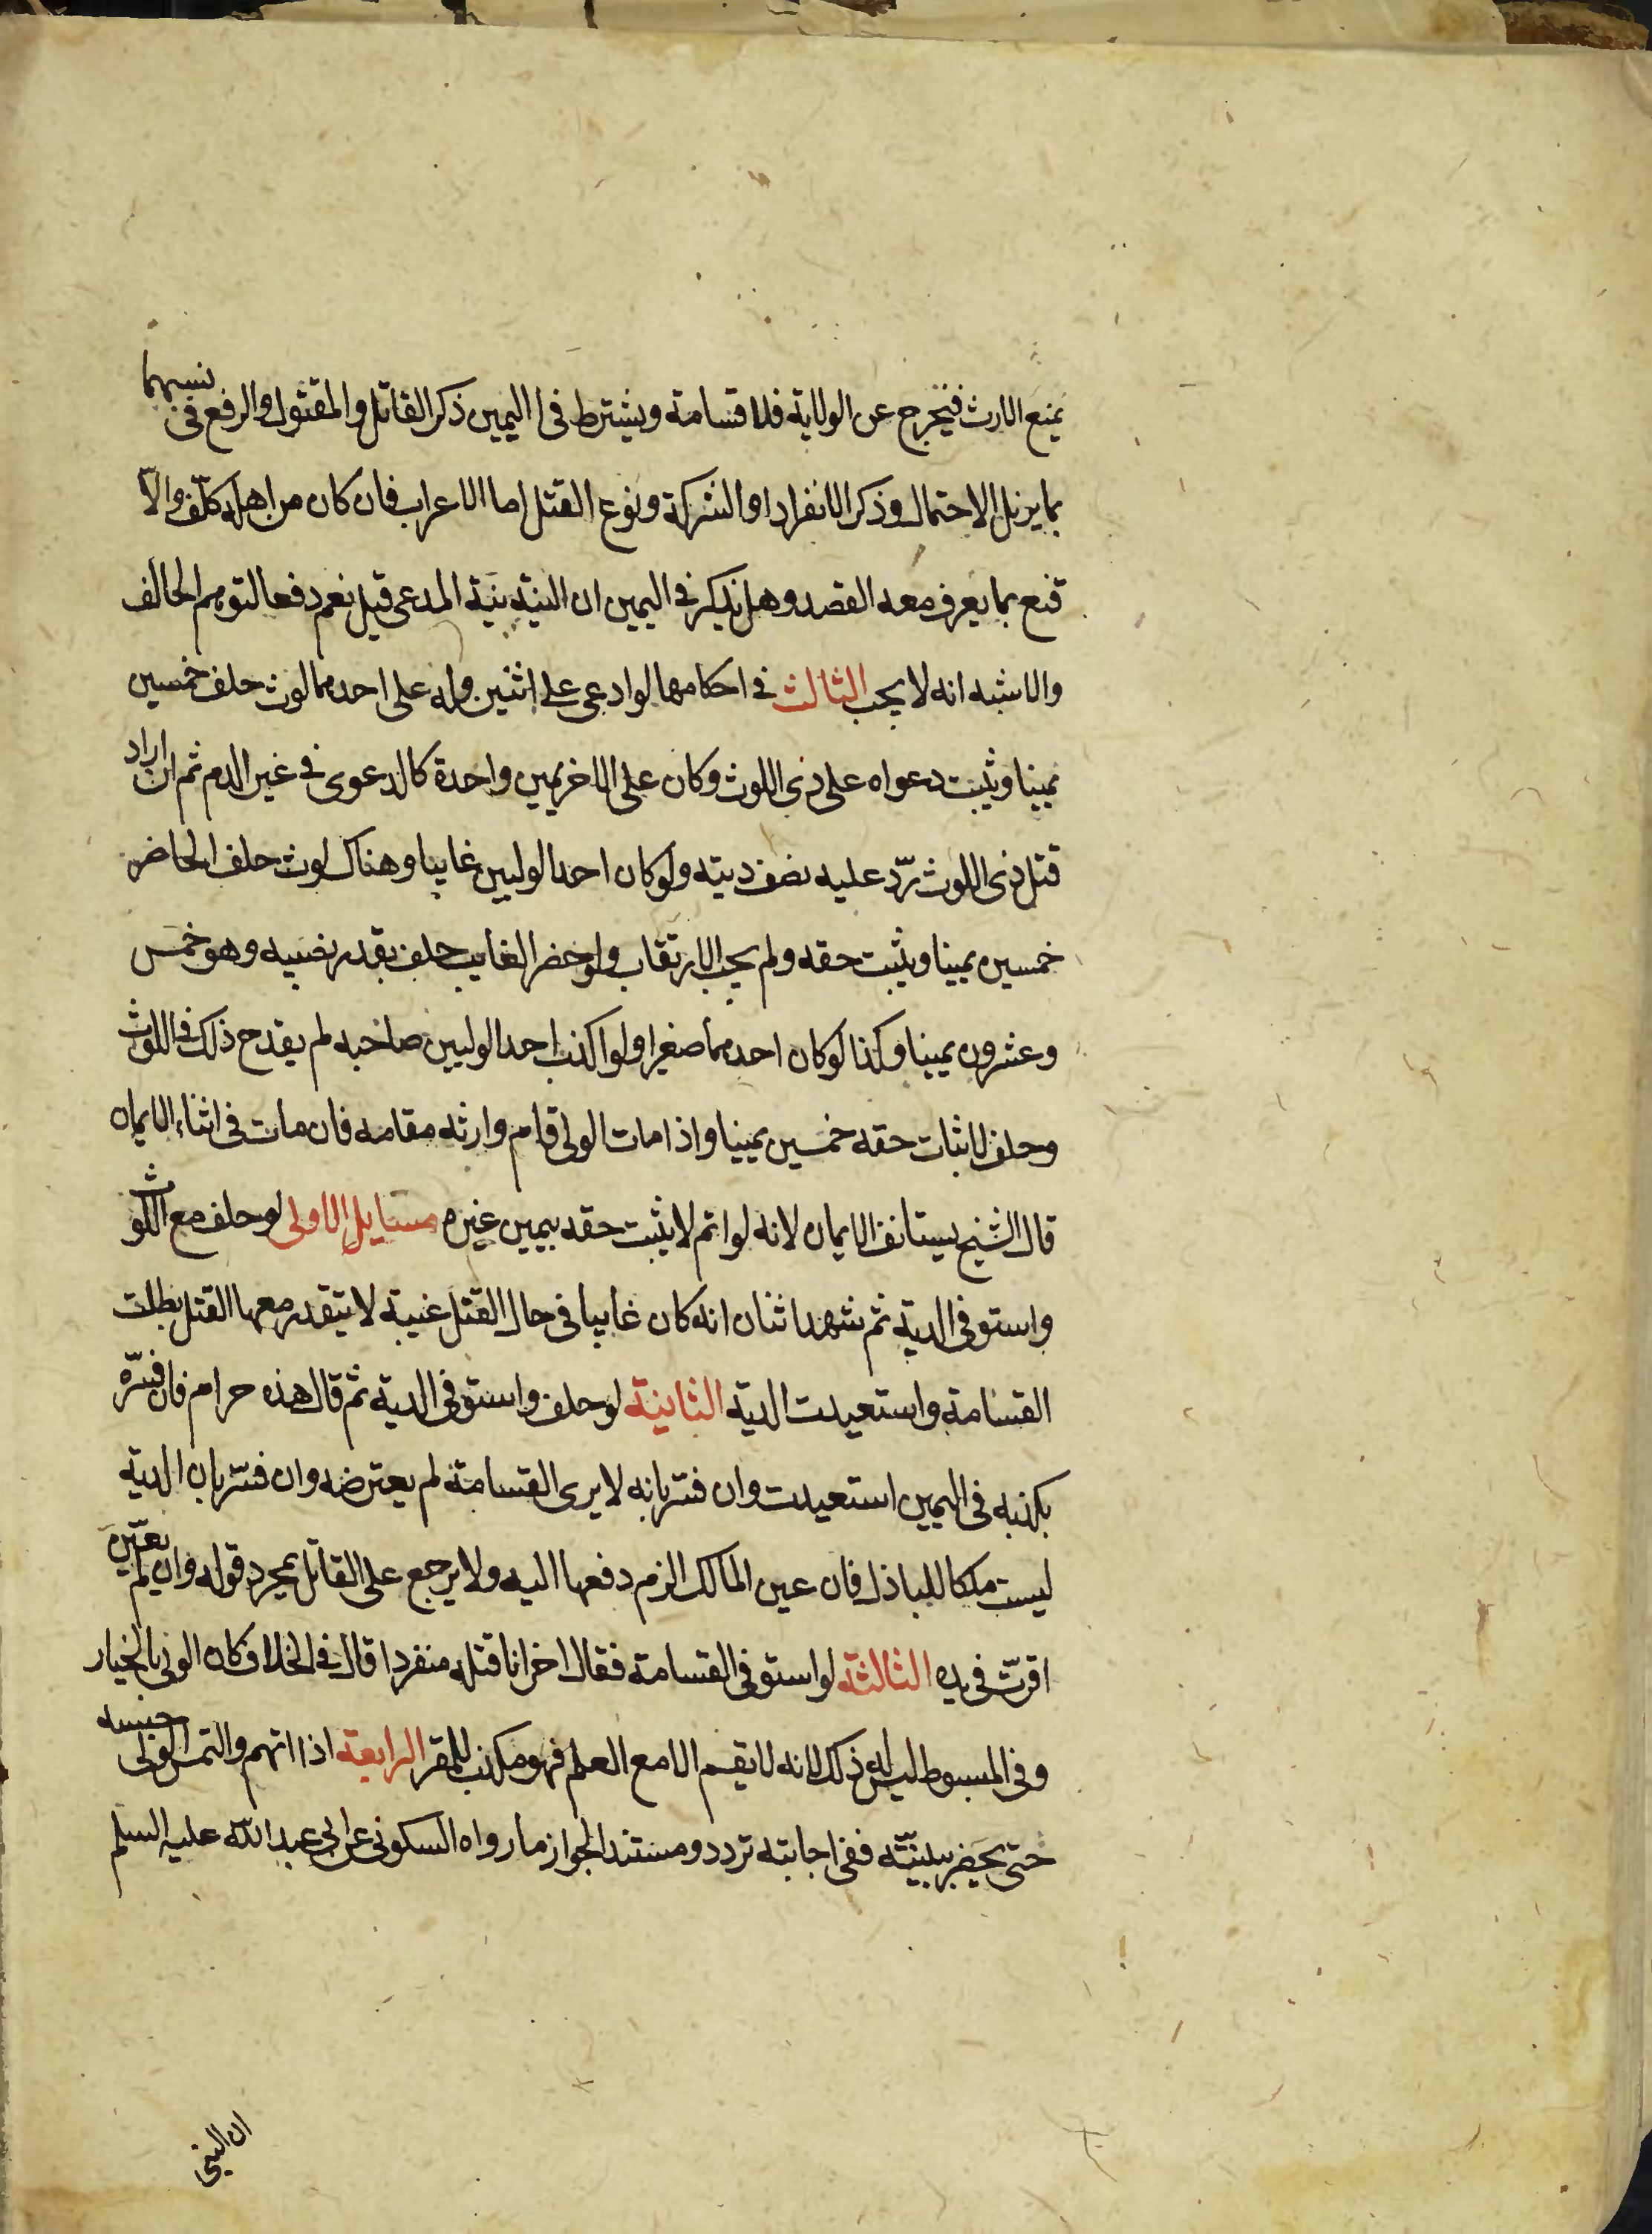 يمنع الارث فيخرج عن الولاية فلا قسامة ويشترط فى اليمين ذكر القاتل والمقتول والرفع فى نسبهما
بما يزيل الاحتمال وذكر الانفراد او الشركة ونوع القتل اما الاعراب فان كان من اهله كلّف والّا
قنع بما يعرف معه القصد وهل يذكر فى اليمين ان النية نية المدعى قيل نعم دفعا لتوهم الحالف
والاشبه انه لا يجب الثالث فى احكامها لو ادعى على اثنين وله على احدهما لوث حلف خمسين
يمينا وثبت دعواه على ذى اللوث وكان على الاخر يمين واحدة كالدعوى فى غير الدم ثم ان اراد
قتل ذى اللوث ردّ عليه نصف ديته ولو كان احد الوليين غايبا وهناك لوث حلف الحاضر
خمسين يمينا ويثبت حقه ولم يجب الارتقاب ولو حضر الغايب حلف بقدر نصيبه وهو خمس
وعشرون يمينا وكذا لو كان احدهما صغيرا ولو اكذب احد الوليين صاحبه لم يقدح ذلك فى اللوث
وحلف لاثبات حقه خمسين يمينا واذا مات الولى قام وارثه مقامه فان مات فى اثناء الايمان
قال الشيخ يستانف الايمان لانه لو اتم لا يثبت حقه بيمين غيره مسايل الاولى لو حلف مع اللوث
واستوفى الدية ثم شهد اثنان انه كان غايبا فى حال القتل غيبة لا يتقدر معها القتل بطلت
القسامة واستعيدت الدية الثانية لو حلف واستوفى الدية ثم قال هذه حرام فان فسّره
بكذبه فى اليمين استعيدت وان فسّر بانه لا يرى القسامة لم يعترضه وان فسّر بان الدية
ليست ملكا للباذل فان عين المالك الزم دفعها اليه ولا يرجع على القاتل بمجرد قوله وان لم يعيّن
اقرّت فى يده الثالثة لو استوفى القسامة فقال اخر انا قتلته منفردا قال فى الخلاف كان الولى بالخيار
وفى المبسوط ليس له ذلك لانه لا يقسم الا مع العلم فهو مكذب للمقر الرابعة اذا اتهم والتمس الولى حبسه
حتى يحضر ببينّته ففى اجابته تردد ومستند الجواز ما رواه السكونى عن ابى عبد الله عليه السلم
ان النبى